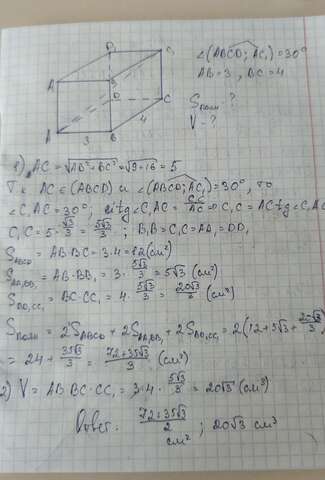 B₁ C₁
A₁ B
D C
A 3 B 4
∠(ABCD; AC₁) = 30°
AB = 3, BC = 4
Sполн - ?
V - ?
1) AC = √AB² + BC² = √9+16 = 5
Т.к. AC ∈ (ABCD) и ∠(ABCD; AC₁) = 30°, то
∠C₁AC = 30°; и tg∠C₁AC = C₁C/AC ⇒ C₁C = AC·tg∠C₁AC
C₁C = 5·√3/3 = 5√3/3; B₁B = C₁C = AA₁ = DD₁
SABCD = AB·BC = 3·4 = 12 (см²)
SAA₁BB₁ = AB·BB₁ = 3·5√3/3 = 5√3 (см²)
= BC·CC₁ = 4·5√3/3 = 20√3/3 (см²)
Sполн = 2SABCD + 2SAA₁BB₁ + 2 = 2(12 + 5√3 + 20√3/3)
= 24 + 35√3/3 = 72+35√3/3 (см²)
2) V = AB·BC·CC₁ = 3·4·5√3/3 = 20√3 (см³)
Ответ: 72+35√3/2 см²; 20√3 см³